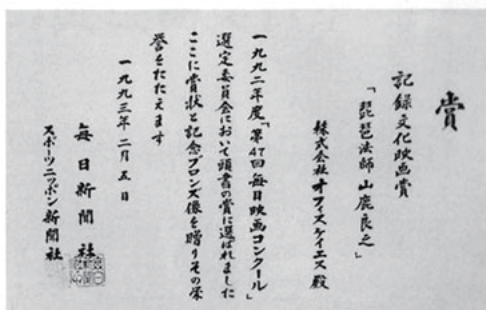 賞
記録文化映画賞
「琵琶法師 山鹿良之」
株式会社オフィスケイエス殿
一九九二年度「第47回毎日映画コンクール」
選定委員会において頭書の賞に選ばれました
ここに賞状と記念ブロンズ像を贈りその栄
誉をたたえます
一九九三年二月五日
毎日新聞社
スポーツニッポン新聞社